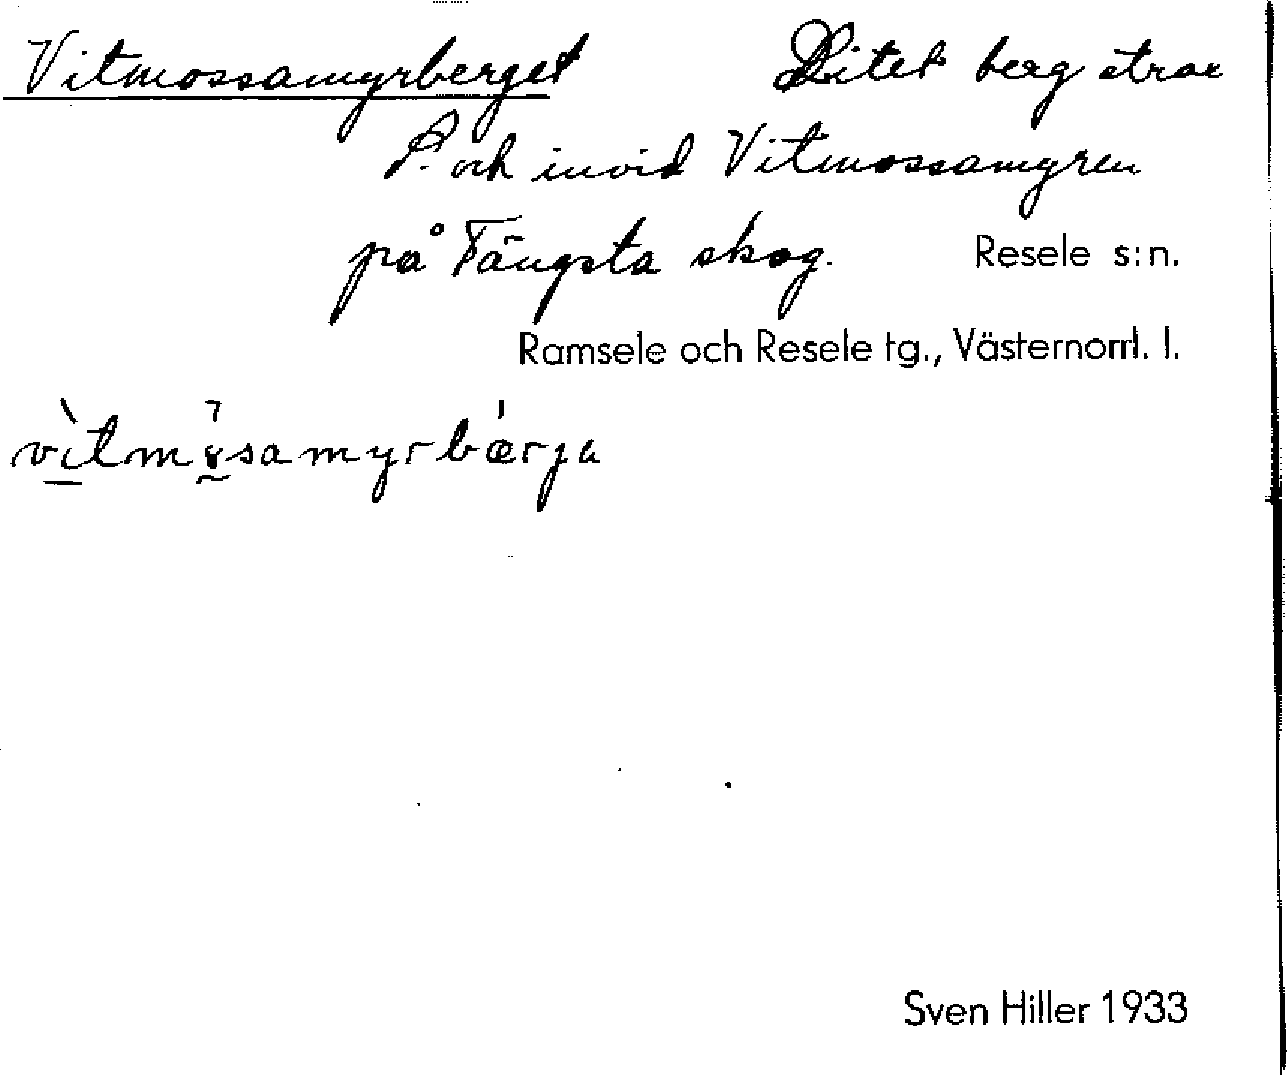 Vitmossamyrberget Litet berg strax
S. och invid Vitmossamyren
på Tängsta skog. Resele s:n.
Ramsele och Resele tg., Västernorrl. l.
Sven Hiller 1933